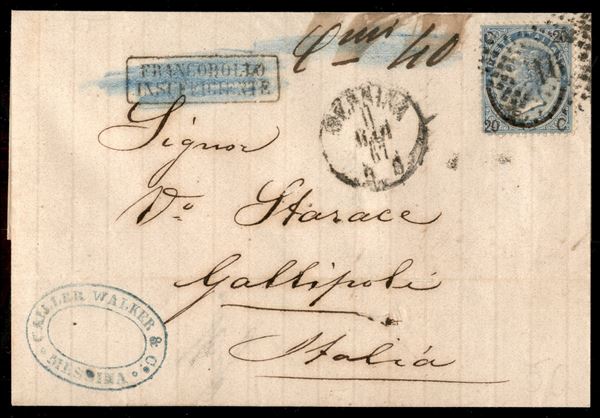 Cmi 40
FRANCOBOLLO
INSUFFICIENTE
C. 20
20 C.
MESSINA
11
MAG
67
Signor
Vo Starace
Gallipoli
Italia
CAILLER WALKER & Co.
MESSINA